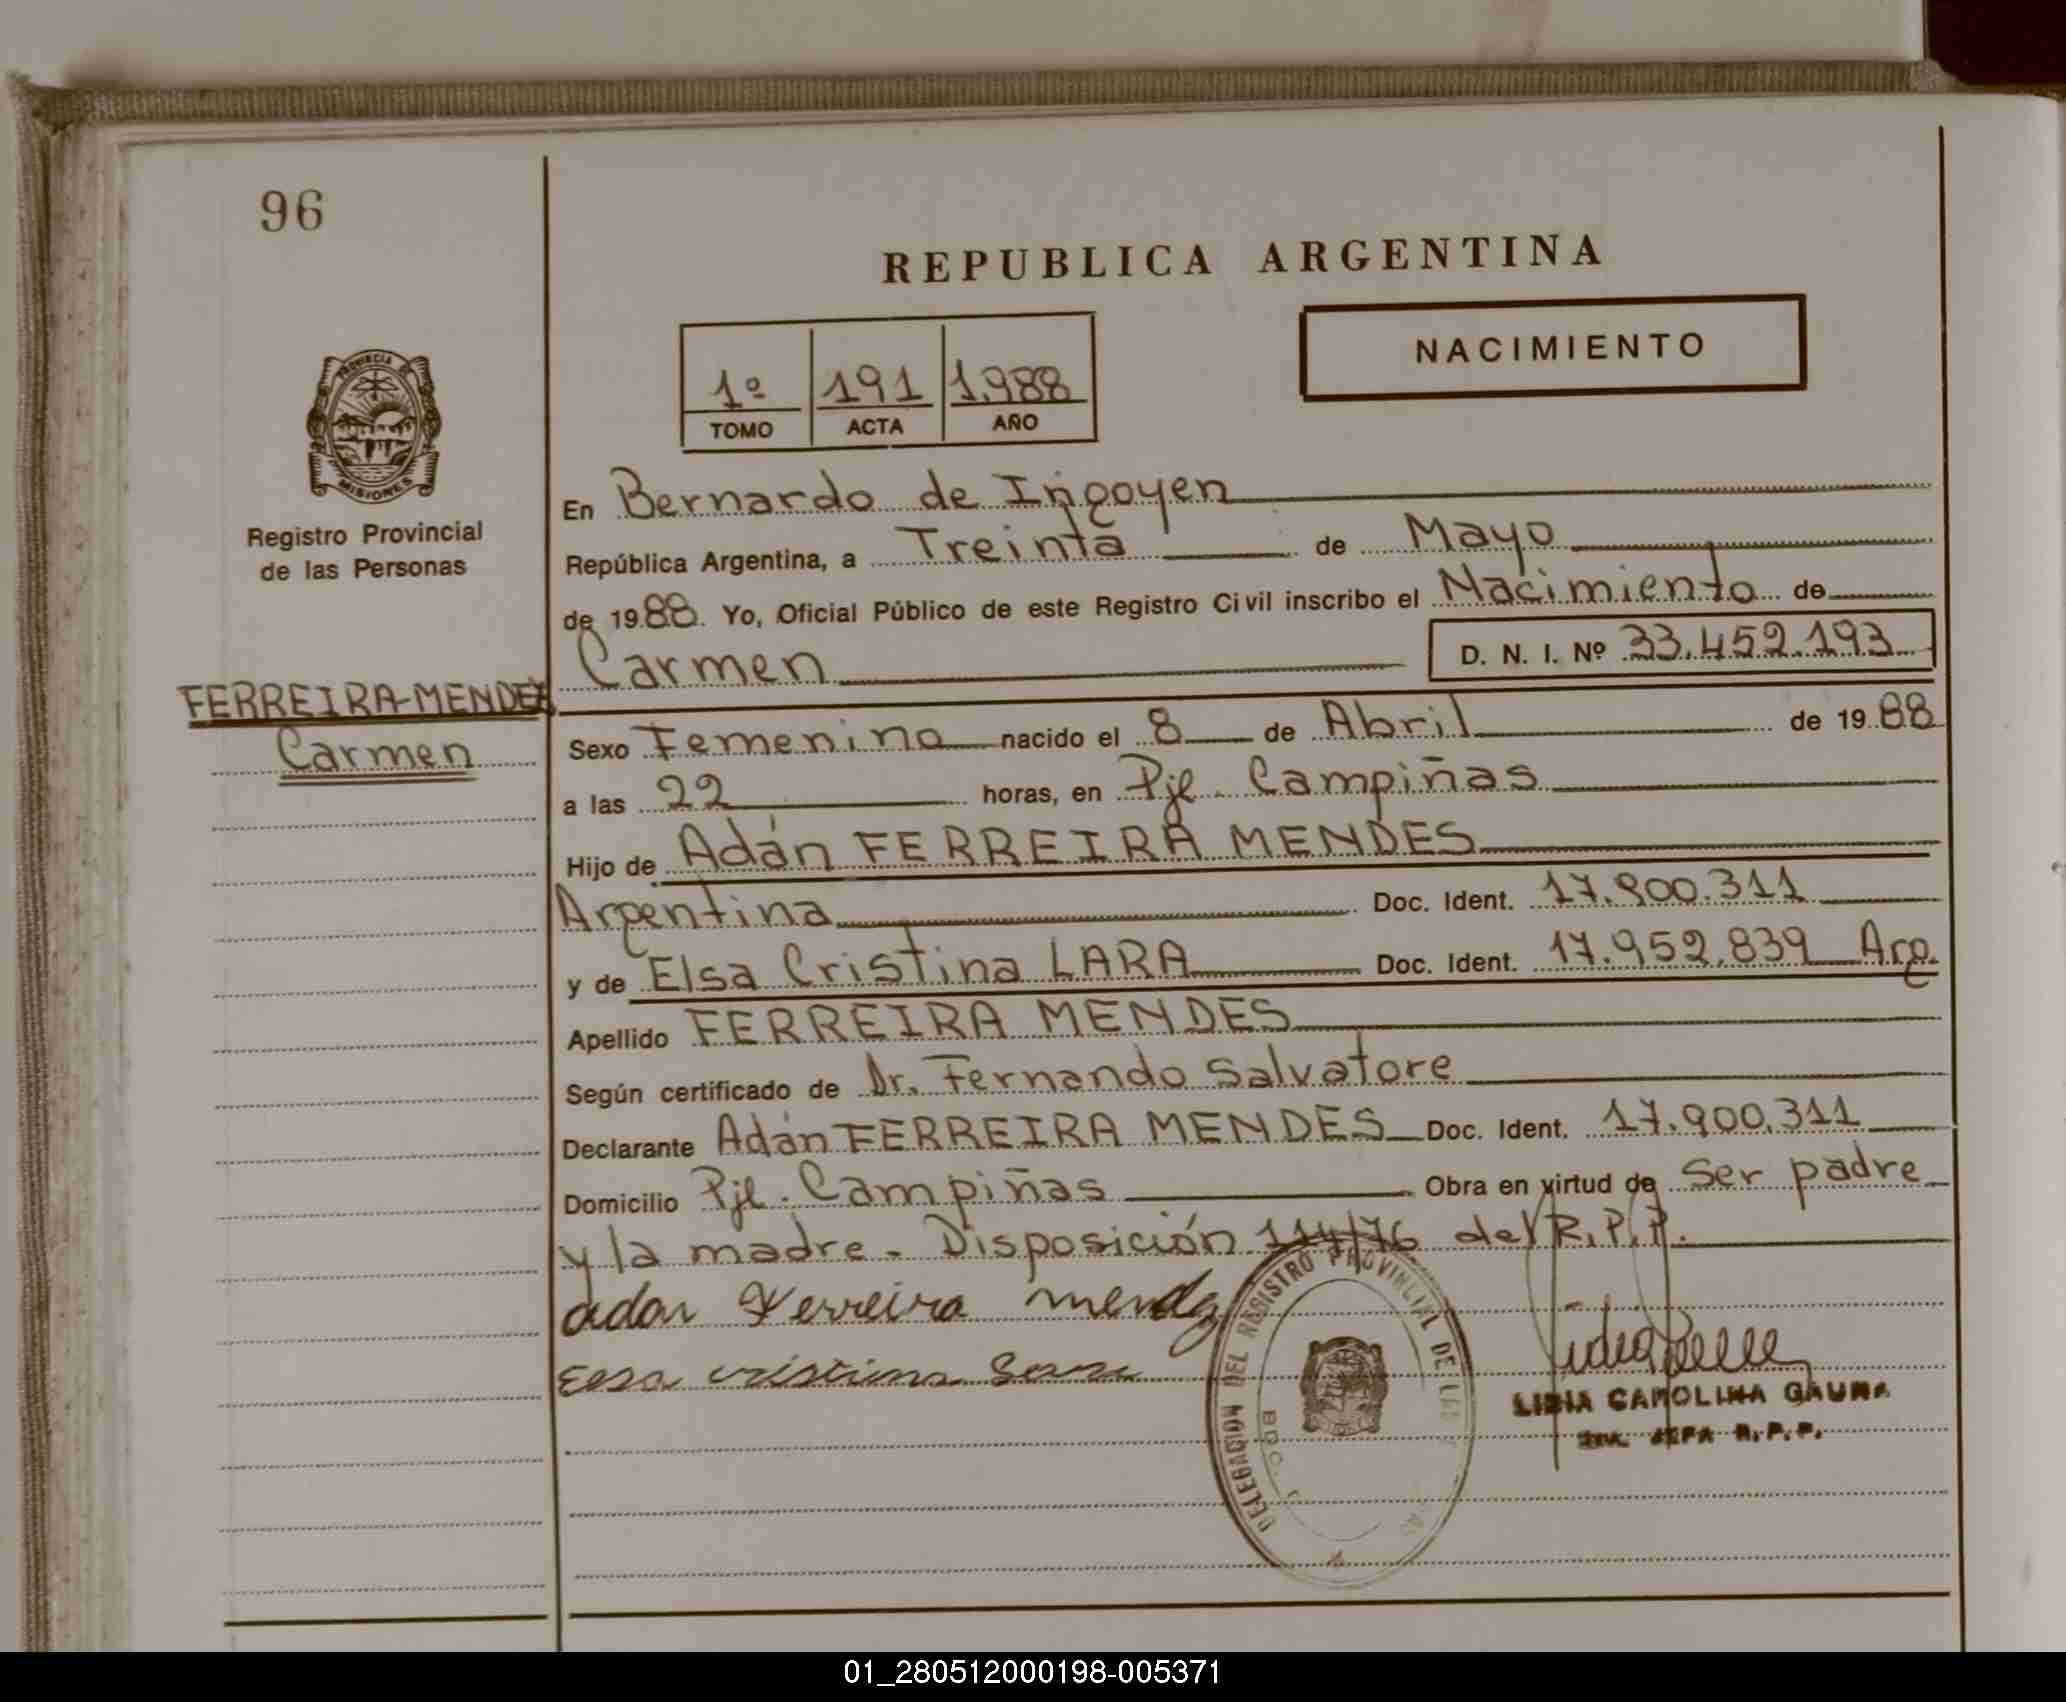 96
REPUBLICA ARGENTINA
NACIMIENTO
1º 191 1.988
TOMO ACTA AÑO
PROVINCIA DE
MISIONES
Registro Provincial
de las Personas
FERREIRA-MENDES
Carmen
En Bernardo de Irigoyen
República Argentina, a Treinta de Mayo
de 1988. Yo, Oficial Público de este Registro Civil inscribo el Nacimiento de
Carmen D. N. I. Nº 33.452.193
Sexo Femenino nacido el 8 de Abril de 1988
a las 22 horas, en Pje. Campiñas
Hijo de Adán FERREIRA MENDES
Argentina Doc. Ident. 17.900.311
y de Elsa Cristina LARA Doc. Ident. 17.952.839 Arg.
Apellido FERREIRA MENDES
Según certificado de Dr. Fernando Salvatore
Declarante Adán FERREIRA MENDES Doc. Ident. 17.900.311
Domicilio Pje. Campiñas Obra en virtud de ser padre
y la madre. Disposición 114/76 del R.P.P.
adan Ferreira mendez
Elsa cristina
DELEGACION DEL REGISTRO PROVINCIAL DE LAS
BDO.
LIDIA CAROLINA GAUNA
JEFA R.P.P.
01_280512000198-005371